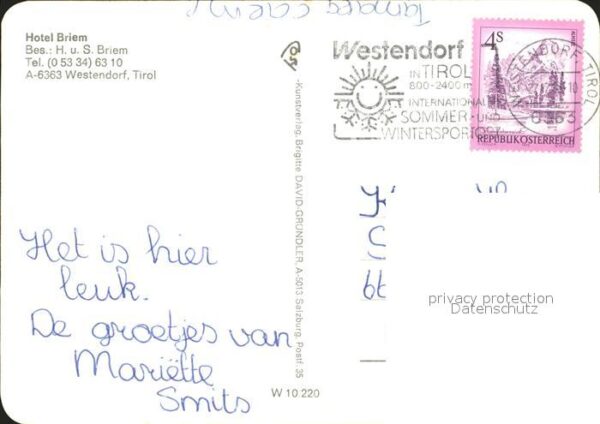 Hotel Briem
Bes.: H. u. S. Briem
Tel. (0 53 34) 63 10
A-6363 Westendorf, Tirol
Het is hier
leuk.
De groetjes van
Mariëtte
Smits
-Kunstverlag, Brigitte DAVID-GRÜNDLER, A-5013 Salzburg, Postf. 35
W 10 220
Westendorf
IN TIROL
800-2400 m
INTERNATIONAL
SOMMER- UND
WINTERSPORTORT
4S
REPUBLIK ÖSTERREICH
WESTENDORF TIROL
6363
privacy protection
Datenschutz